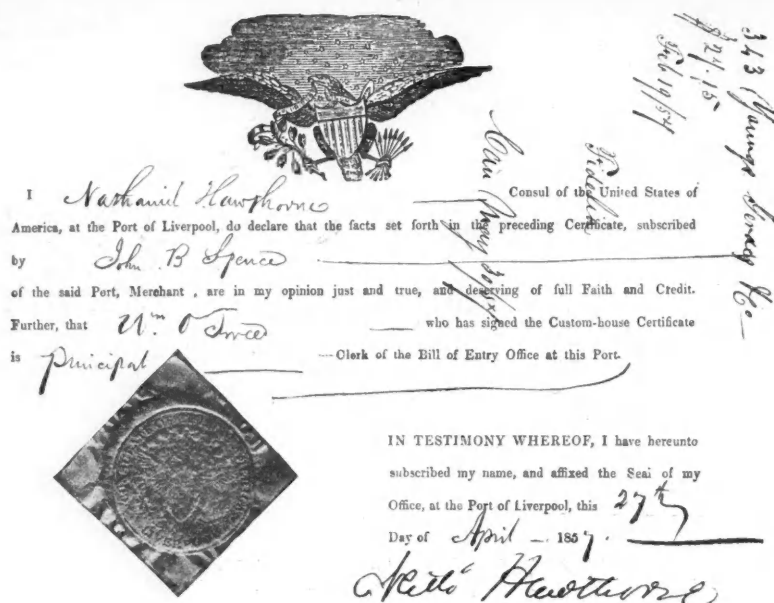 I Nathaniel Hawthorne Consul of the United States of
America, at the Port of Liverpool, do declare that the facts set forth in the preceding Certificate, subscribed
by John B Spence
of the said Port, Merchant, are in my opinion just and true, and deserving of full Faith and Credit.
Further, that Wm O who has signed the Custom-house Certificate
is Principal Clerk of the Bill of Entry Office at this Port.
IN TESTIMONY WHEREOF, I have hereunto
subscribed my name, and affixed the Seal of my
Office, at the Port of Liverpool, this 27th
Day of April 1857.
Hawthorne
343
$24.15
Feb 19/54